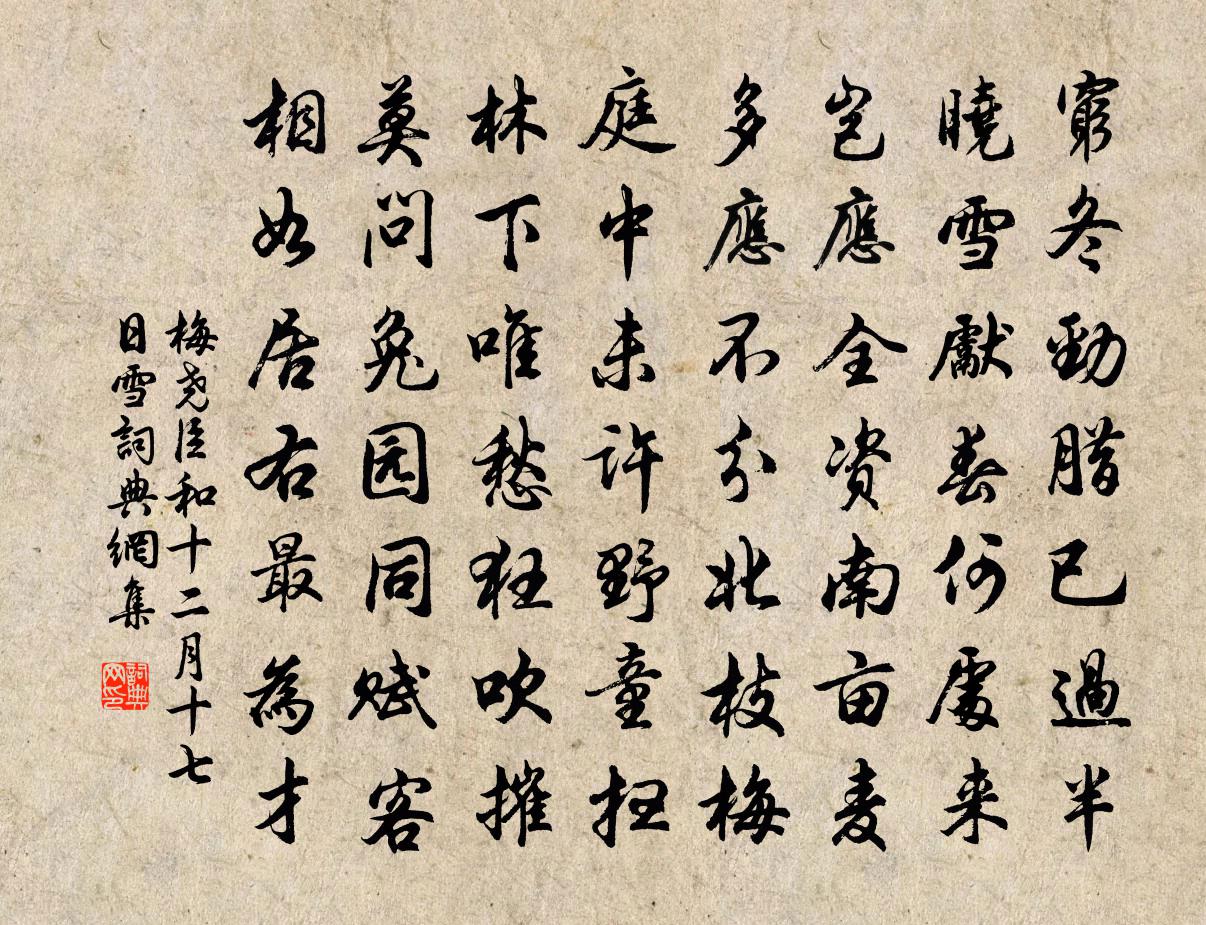 窮冬勁腊已過半
曉雪獻春何處来
豈應全资南亩麦
多應不分北枝梅
庭中未许野童扫
林下唯愁狂吹摧
莫问兔园同赋客
相如居右最為才
梅尧臣和十二月十七
日雪詞典網集
詞典
网印